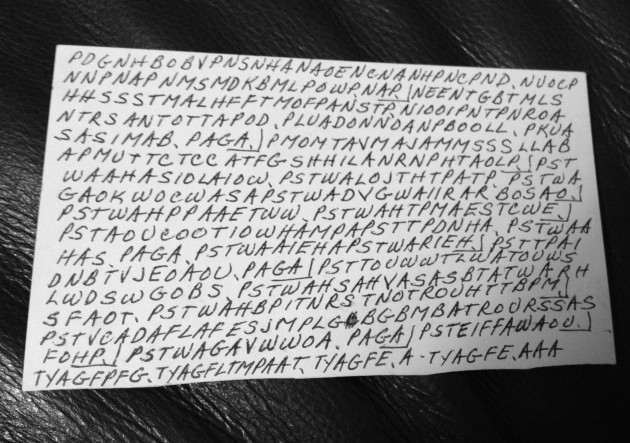 PDGNHBOBVPNSNHANAOENCNANHPNCPND. NUOCP
NNPNAPNMSMDKBMLPOWPNAP.) NEENTGBTMLS
HHSSSTMALHFFTMOFPANSTPNIOOIPNTPNROA
NTRSANTOTTAPOD. PLUADONNOANPBOOLL. PKUA
SASIMAB. PAGA.) PMOMTAVMAJAMMSSSLLAB
APMUTTCTCCATFGSHHILANRNPHTAOLP.) PST
WAAHASIOLAIOW. PSTWALOJTHTPATP. PSTWA
GAOKWOCWASAPSTWADVGWAIIRAR BOSAO.)
PSTWAHPPAAETWW. PSTWAHTPMAESTCWE.)
PSTAOUCOOTIOWHAMPAPSTTPDNHA. PSTWAA
HAS. PAGA. PSTWAAIEHAPSTWARIEH.) PSTTPAI
DNBTVJEOAOU. PAGA) PSTTOUWWTLWATOUWS
LWDSWGOBS. PSTWAHSAHVASASBTATWARH
SFAOT. PSTWAHBPITNRSTNOTROUHTTBPM)
PSTVCADAFLAFESJMPLG BGBMBATROURSSAS
FOHP.) PSTWAGAVWWOA. PAGA) PSTEIFFAWAOU.)
TYAGFPFG. TYAGFLTMPAAT. TYAGFE. A-TYAGFE. AAA